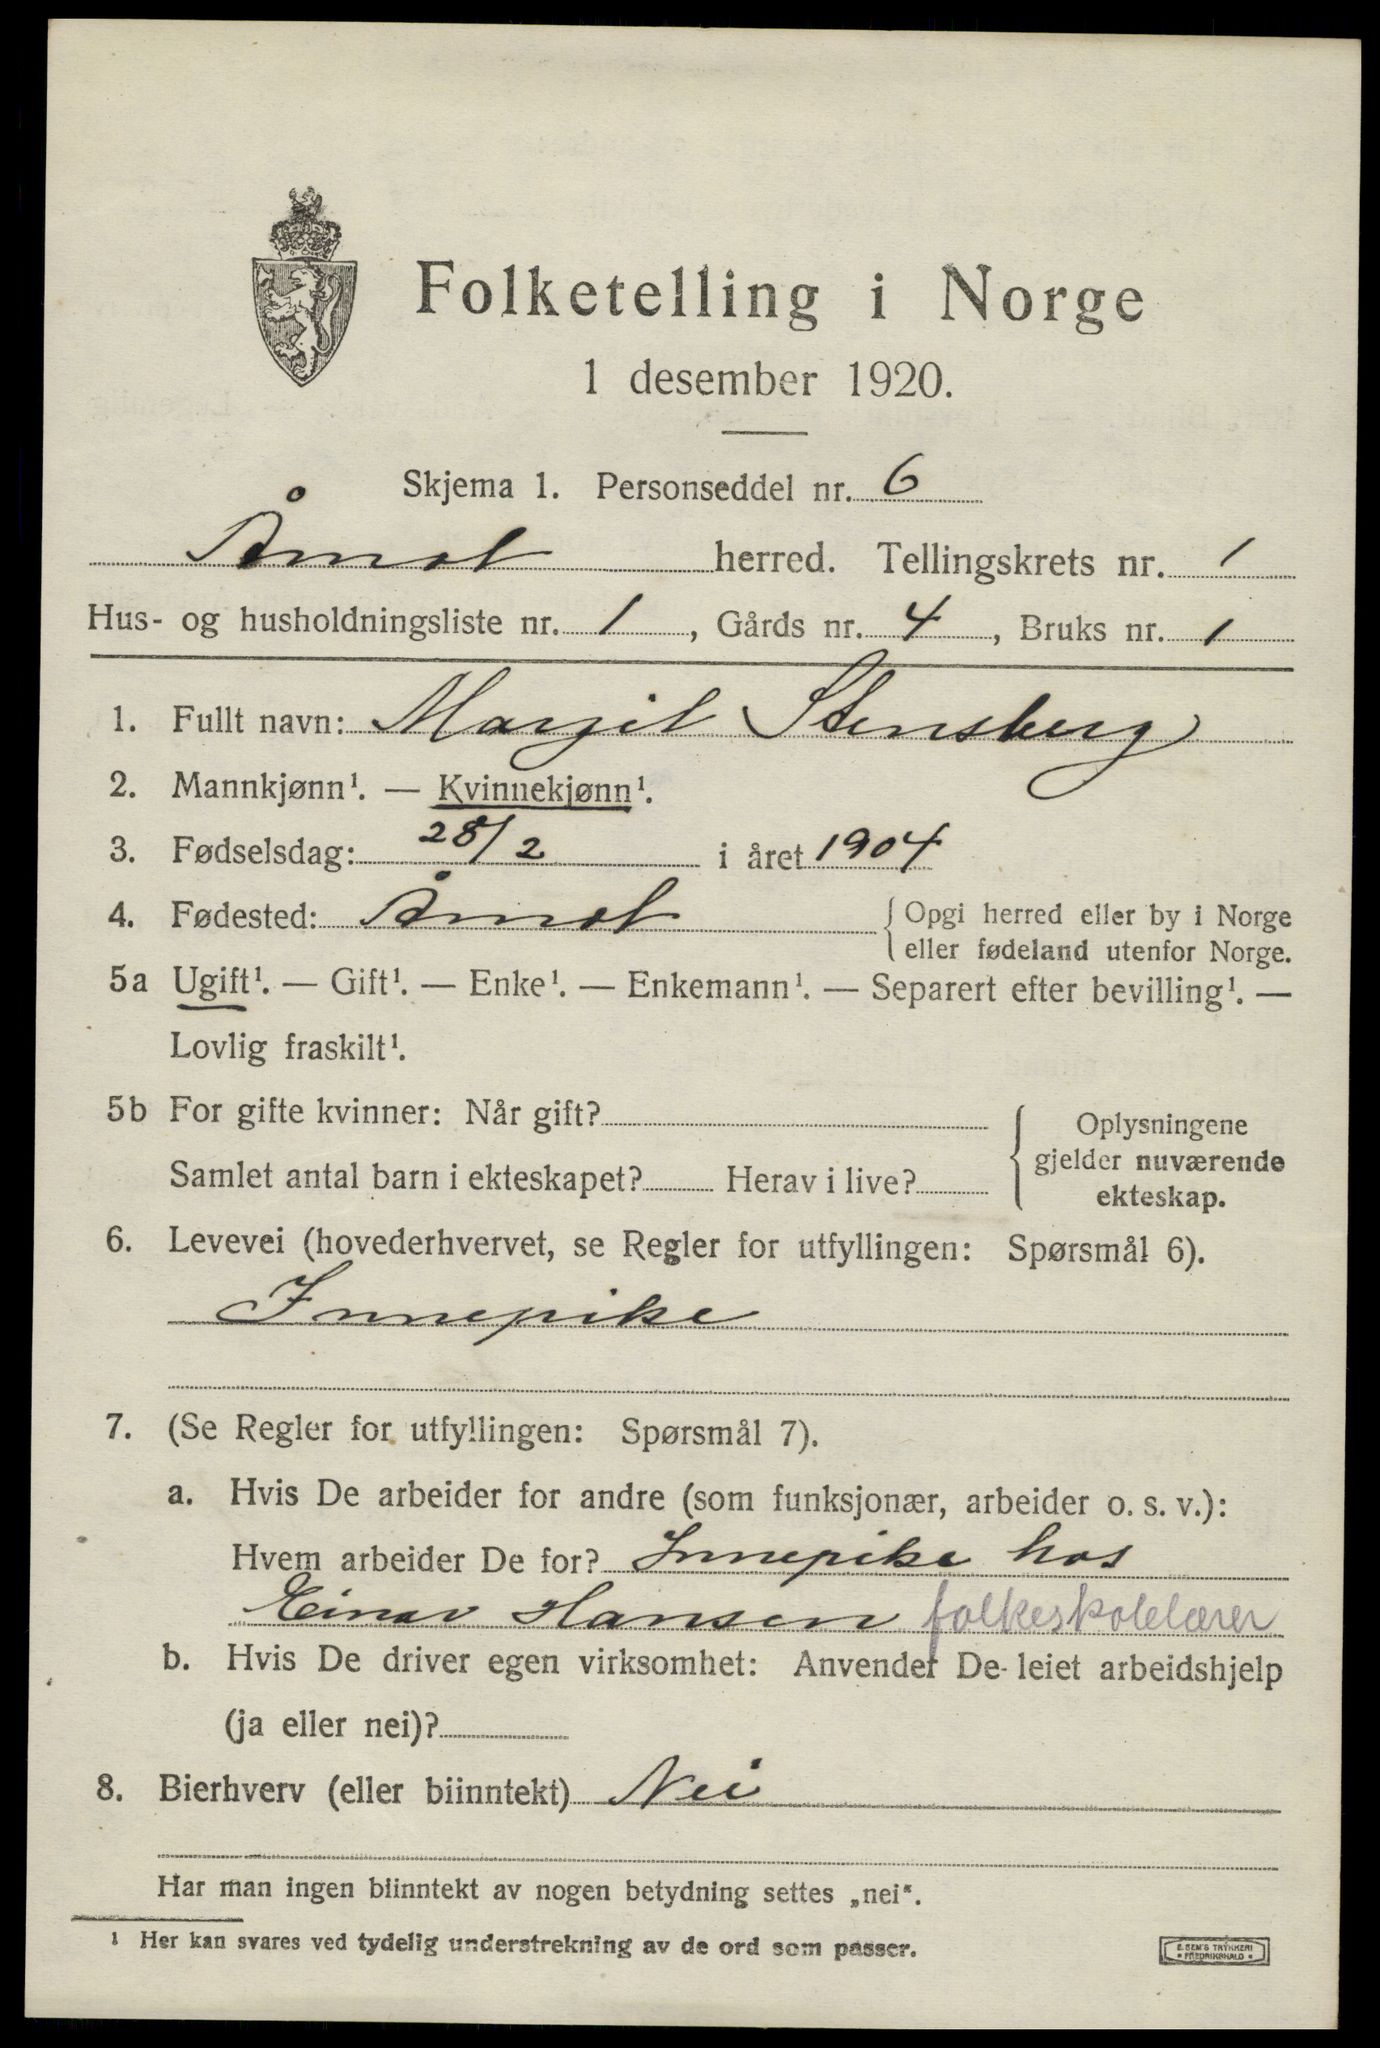 Folketelling i Norge
1 desember 1920.
Skjema 1. Personseddel nr. 6
Åmot herred. Tellingskrets nr. 1
Hus- og husholdningsliste nr. 1, Gårds nr. 4, Bruks nr. 1
1. Fullt navn: Margit Stensberg
2. Mannkjønn¹. — Kvinnekjønn¹.
3. Fødselsdag: 28/2 i året 1904
4. Fødested: Åmot { Opgi herred eller by i Norge
eller fødeland utenfor Norge.
5a Ugift¹. — Gift¹. — Enke¹. — Enkemann¹. — Separert efter bevilling¹. —
Lovlig fraskilt¹.
5b For gifte kvinner: Når gift?
Samlet antal barn i ekteskapet? Herav i live?
Oplysningene
gjelder nuværende
ekteskap.
6. Levevei (hovederhvervet, se Regler for utfyllingen: Spørsmål 6).
Innepike
7. (Se Regler for utfyllingen: Spørsmål 7).
a. Hvis De arbeider for andre (som funksjonær, arbeider o. s. v.):
Hvem arbeider De for? Innepike hos
Einar Hansen folkeskolelærer
b. Hvis De driver egen virksomhet: Anvender De leiet arbeidshjelp
(ja eller nei)?
8. Bierhverv (eller biinntekt) Nei
Har man ingen biinntekt av nogen betydning settes „nei".
¹ Her kan svares ved tydelig understrekning av de ord som passer.
E. SEM'S TRYKKERI
• FREDRIKSHALD •